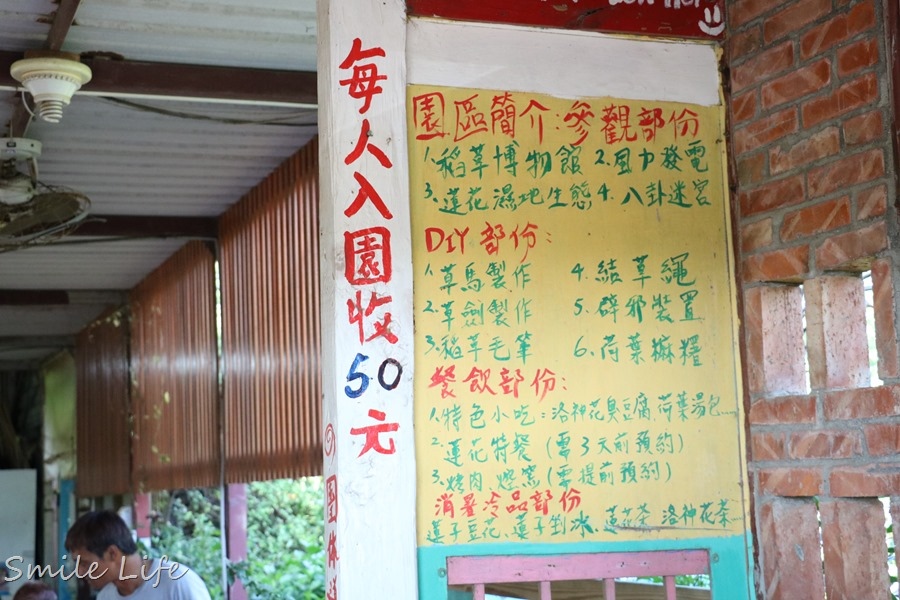 每人入園收50元
園區簡介:參觀部份
1.稻草博物館 2.風力發電
3.蓮花濕地生態 4.八卦迷宮
DIY部份:
1.草馬製作 4.結草繩
2.草劍製作 5.辟邪裝置
3.稻草毛筆 6.荷葉麻糬
餐飲部份:
1.特色小吃:洛神花臭豆腐 荷葉湯包
2.蓮花特餐(需3天前預約)
3.烤肉、焢窯(需提前預約)
消暑冷品部份
蓮子豆花、蓮子剉冰、蓮花茶、洛神花茶
團体
Smile Life